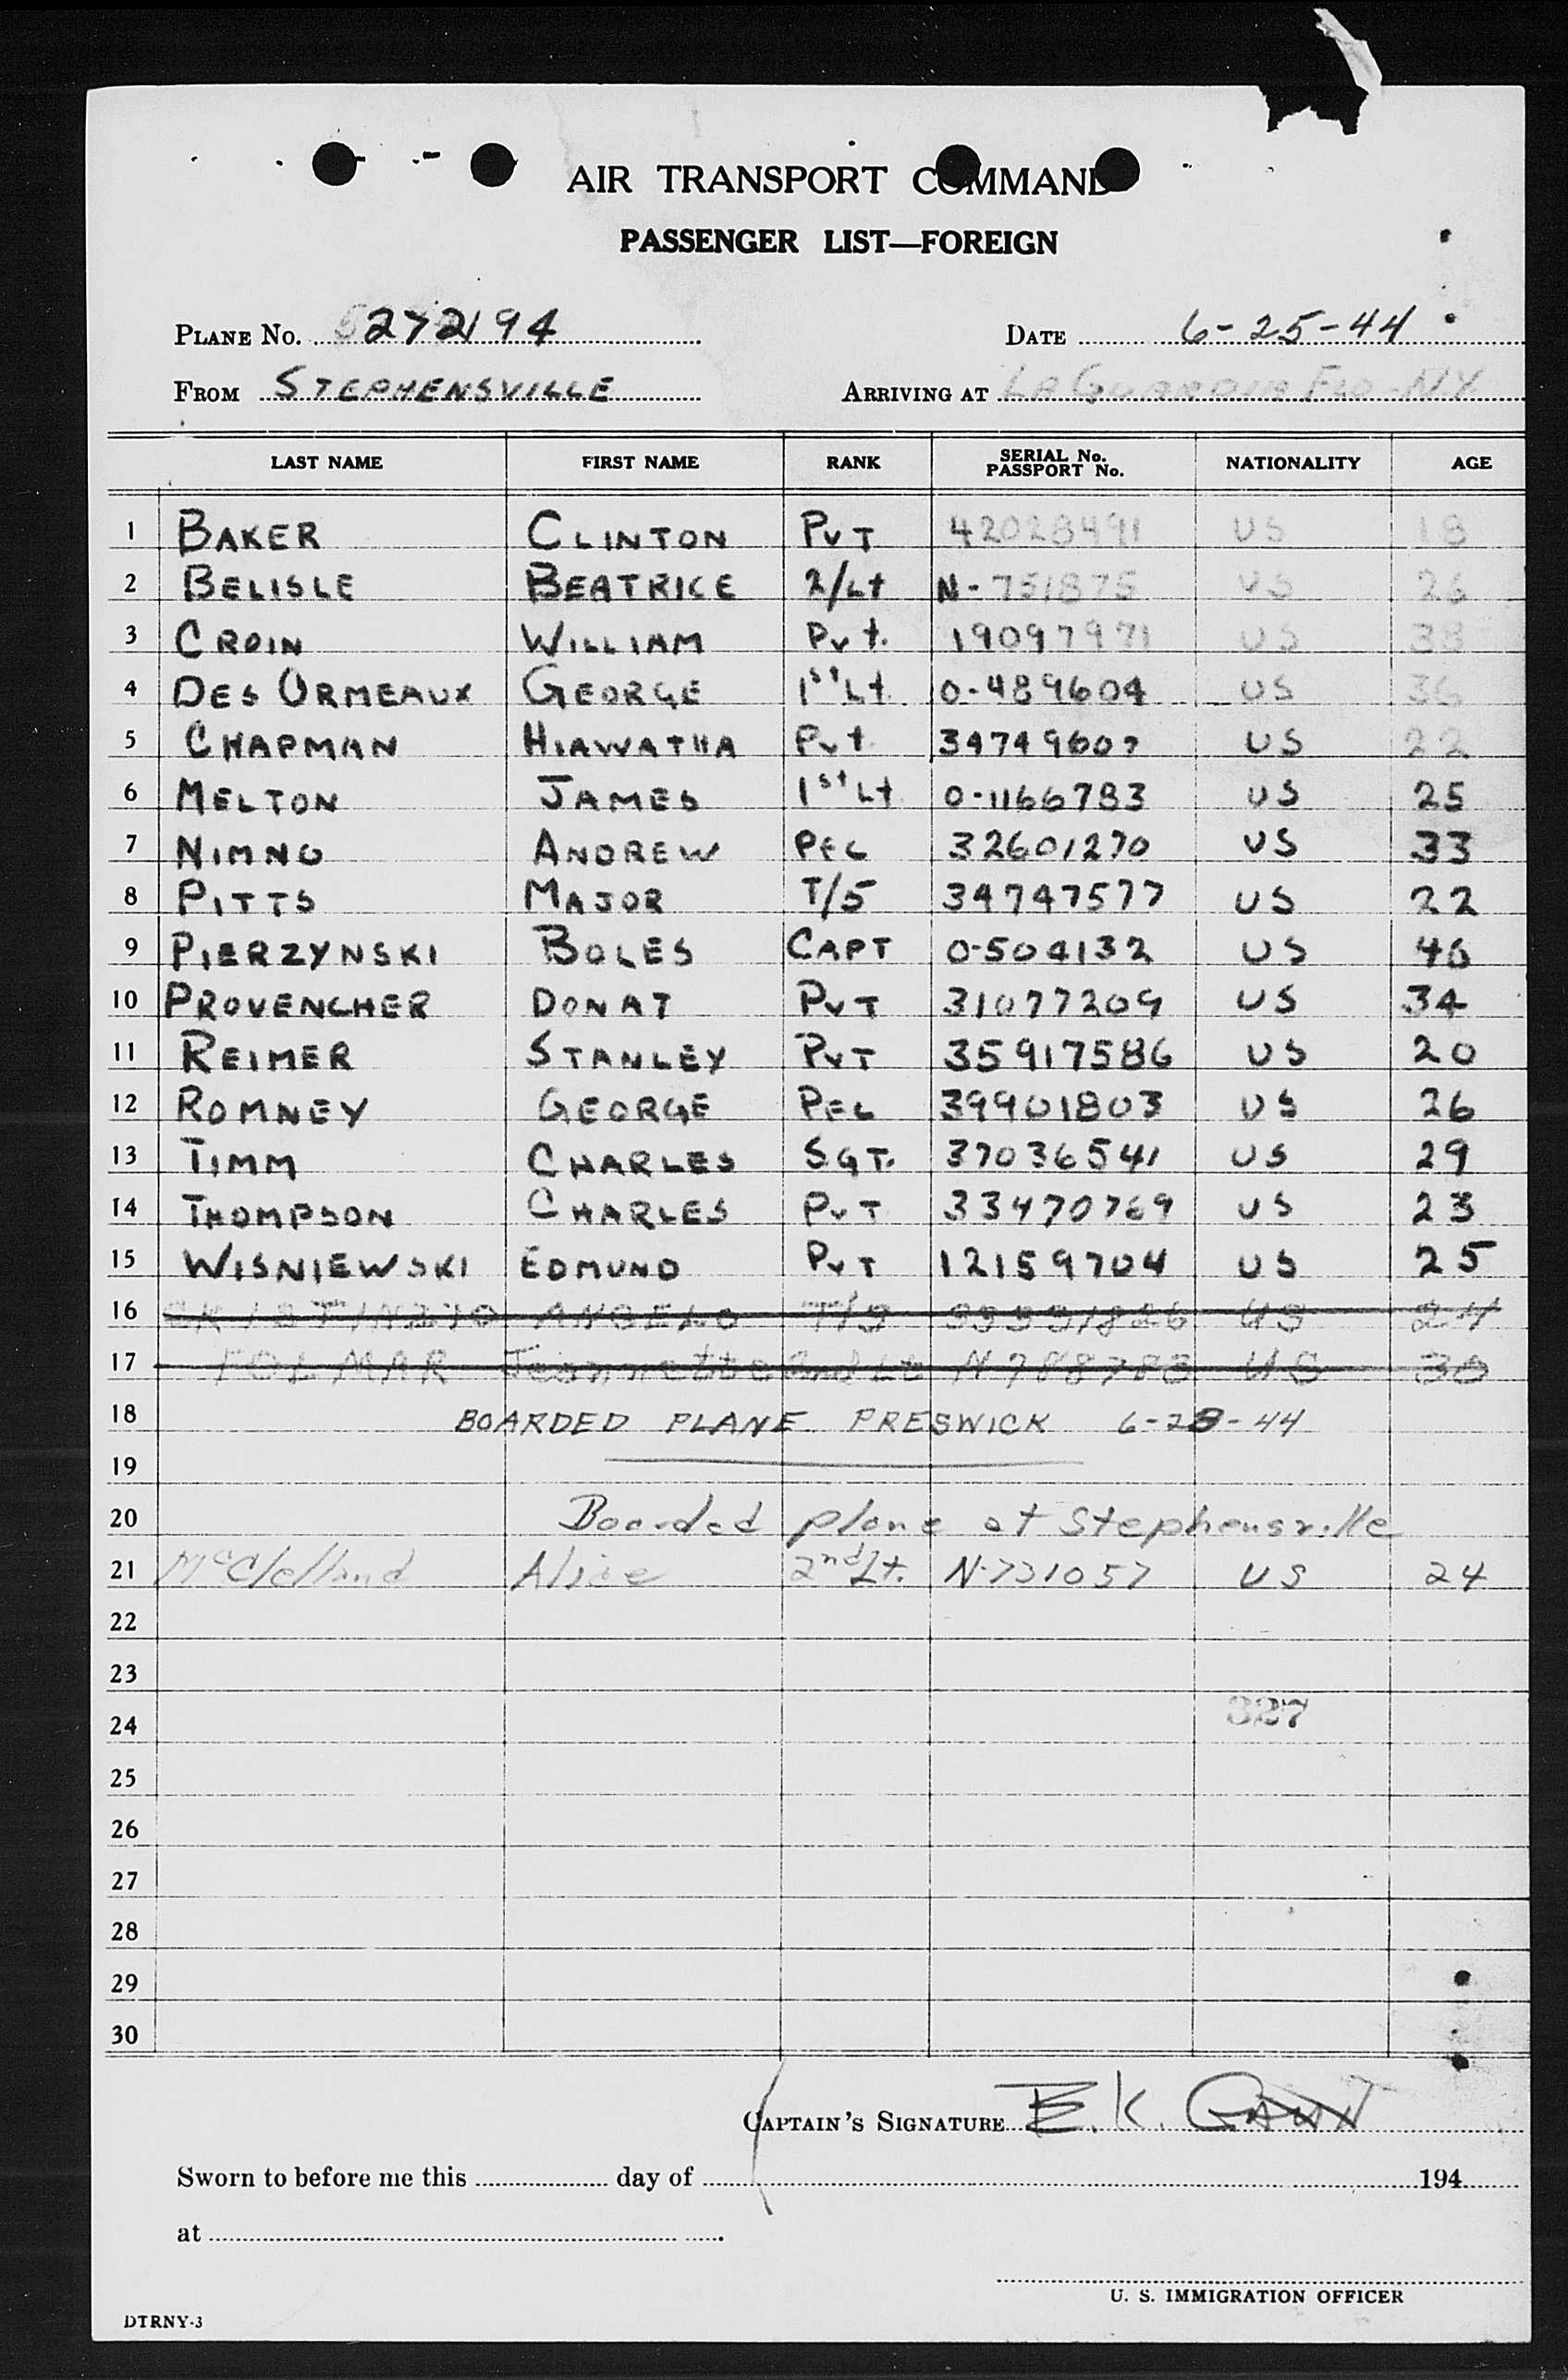 AIR TRANSPORT COMMAND
PASSENGER LIST—FOREIGN
PLANE No. 272194 DATE 6-25-44
FROM STEPHENSVILLE ARRIVING AT LAGUARDIA FLD-NY
LAST NAME FIRST NAME RANK SERIAL No. PASSPORT No. NATIONALITY AGE
1 BAKER CLINTON PVT 42028491 US 18
2 BELISLE BEATRICE 2/Lt N-751875 US 26
3 CROIN WILLIAM Pvt. 19097971 US 38
4 DES ORMEAUX GEORGE 1st Lt. 0-489604 US 36
5 CHAPMAN HIAWATHA Pvt 34749607 US 22
6 MELTON JAMES 1st Lt 0-1166783 US 25
7 NIMNO ANDREW PFC 32601270 US 33
8 PITTS MAJOR T/5 34747577 US 22
9 PIERZYNSKI BOLES CAPT 0-504132 US 46
10 PROVENCHER DONAT PVT 31077209 US 34
11 REIMER STANLEY PVT 35917586 US 20
12 ROMNEY GEORGE PFC 39901803 US 26
13 TIMM CHARLES SGT. 37036541 US 29
14 THOMPSON CHARLES PVT 33470769 US 23
15 WISNIEWSKI EDMUND PVT 12159704 US 25
16 ANGELO US 24
17 FOLMAR Jeannette 2nd Lt N 788783 US 30
18 BOARDED PLANE PRESWICK 6-23-44
19
20 Boarded plane at Stephensville
21 McClelland Alice 2nd Lt. N-731057 US 24
22
23
24 327
25
26
27
28
29
30
CAPTAIN'S SIGNATURE E.K. GANT
Sworn to before me this day of 194
at
U. S. IMMIGRATION OFFICER
DTRNY-3